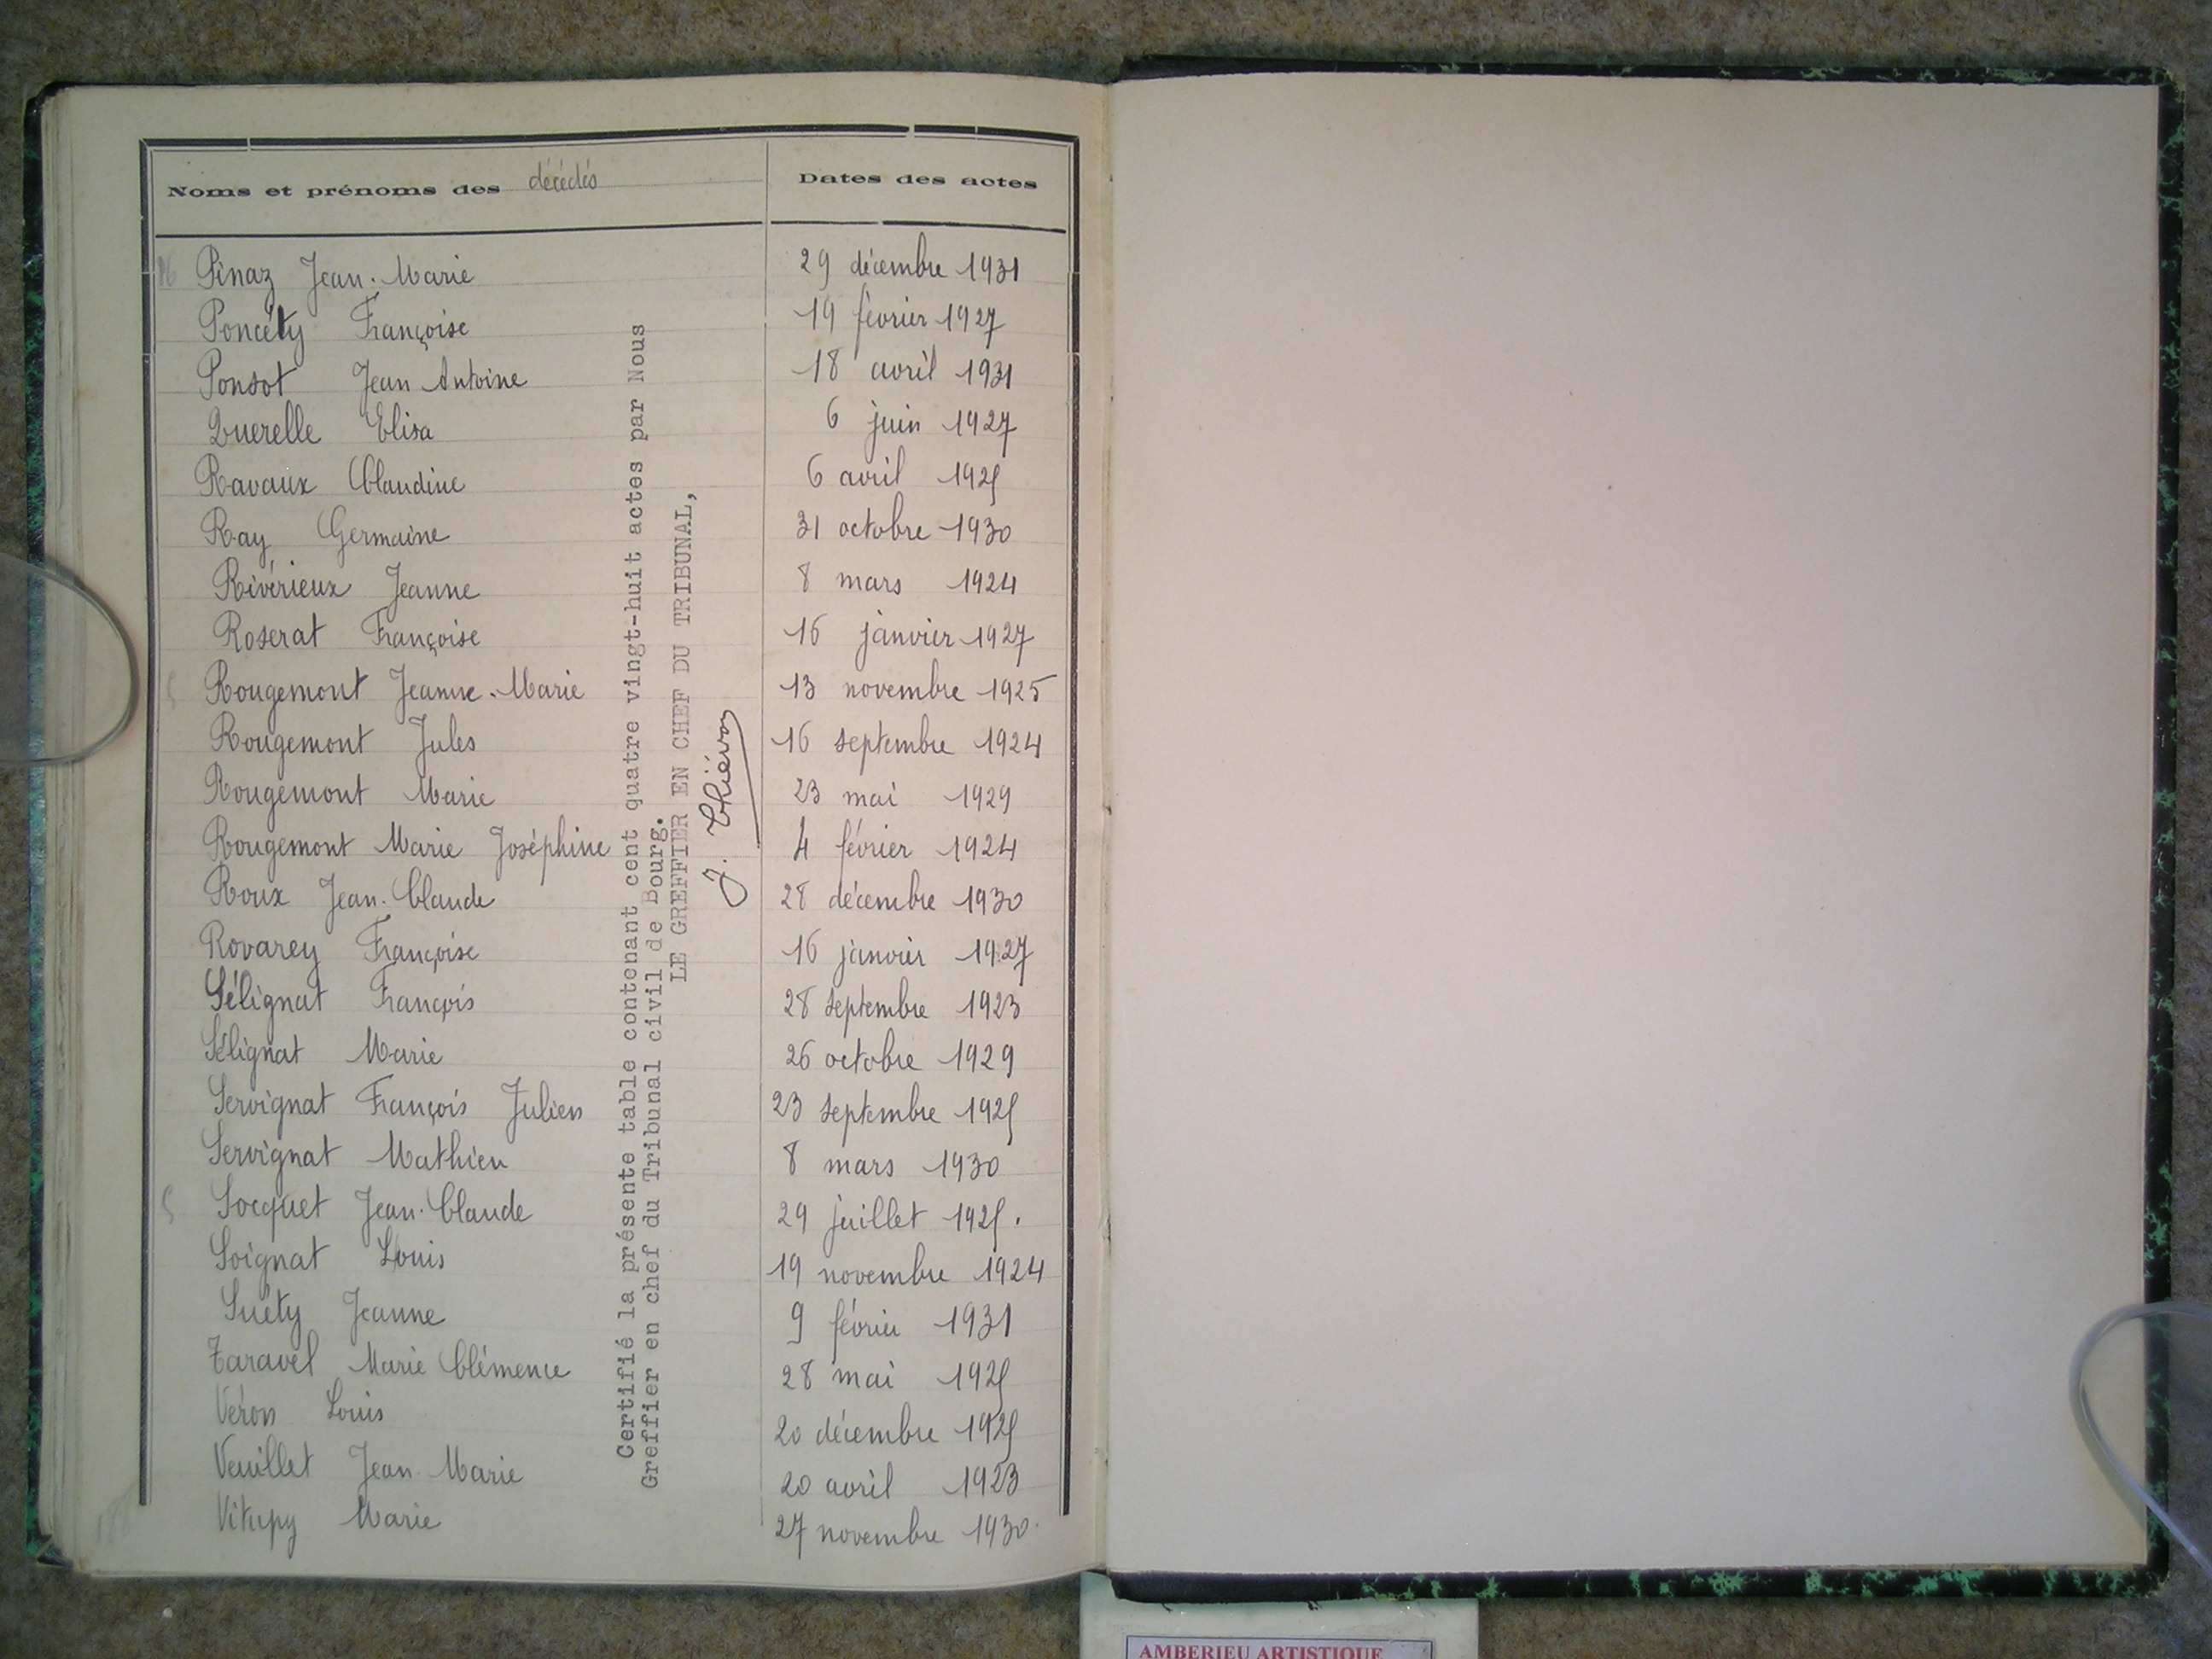 Noms et prénoms des décédés Dates des actes
Pinaz Jean-Marie 29 décembre 1931
Poncéty Françoise 19 février 1927
Ponsot Jean Antoine 18 avril 1931
Querelle Elisa 6 juin 1927
Ravaux Claudine 6 avril 1925
Ray Germaine 31 octobre 1930
Rivérieux Jeanne 8 mars 1924
Roserat Françoise 16 janvier 1927
Rougemont Jeanne-Marie 13 novembre 1925
Rougemont Jules 16 septembre 1924
Rougemont Marie 23 mai 1929
Rougemont Marie Joséphine 4 février 1924
Roux Jean-Claude 28 décembre 1930
Rovarey Françoise 16 janvier 1927
Sélignat François 28 septembre 1923
Sélignat Marie 26 octobre 1929
Servignat François Julien 23 septembre 1925
Servignat Mathieu 8 mars 1930
Socquet Jean-Claude 29 juillet 1925.
Soignat Louis 19 novembre 1924
Suéty Jeanne 9 février 1931
Taravel Marie Clémence 28 mai 1925
Véron Louis 20 décembre 1925
Veuillet Jean Marie 20 avril 1923
Vitupy Marie 27 novembre 1930.
Certifié la présente table contenant cent quatre vingt-huit actes par Nous
Greffier en chef du Tribunal civil de Bourg.
LE GREFFIER EN CHEF DU TRIBUNAL,
AMBERIEU ARTISTIQUE